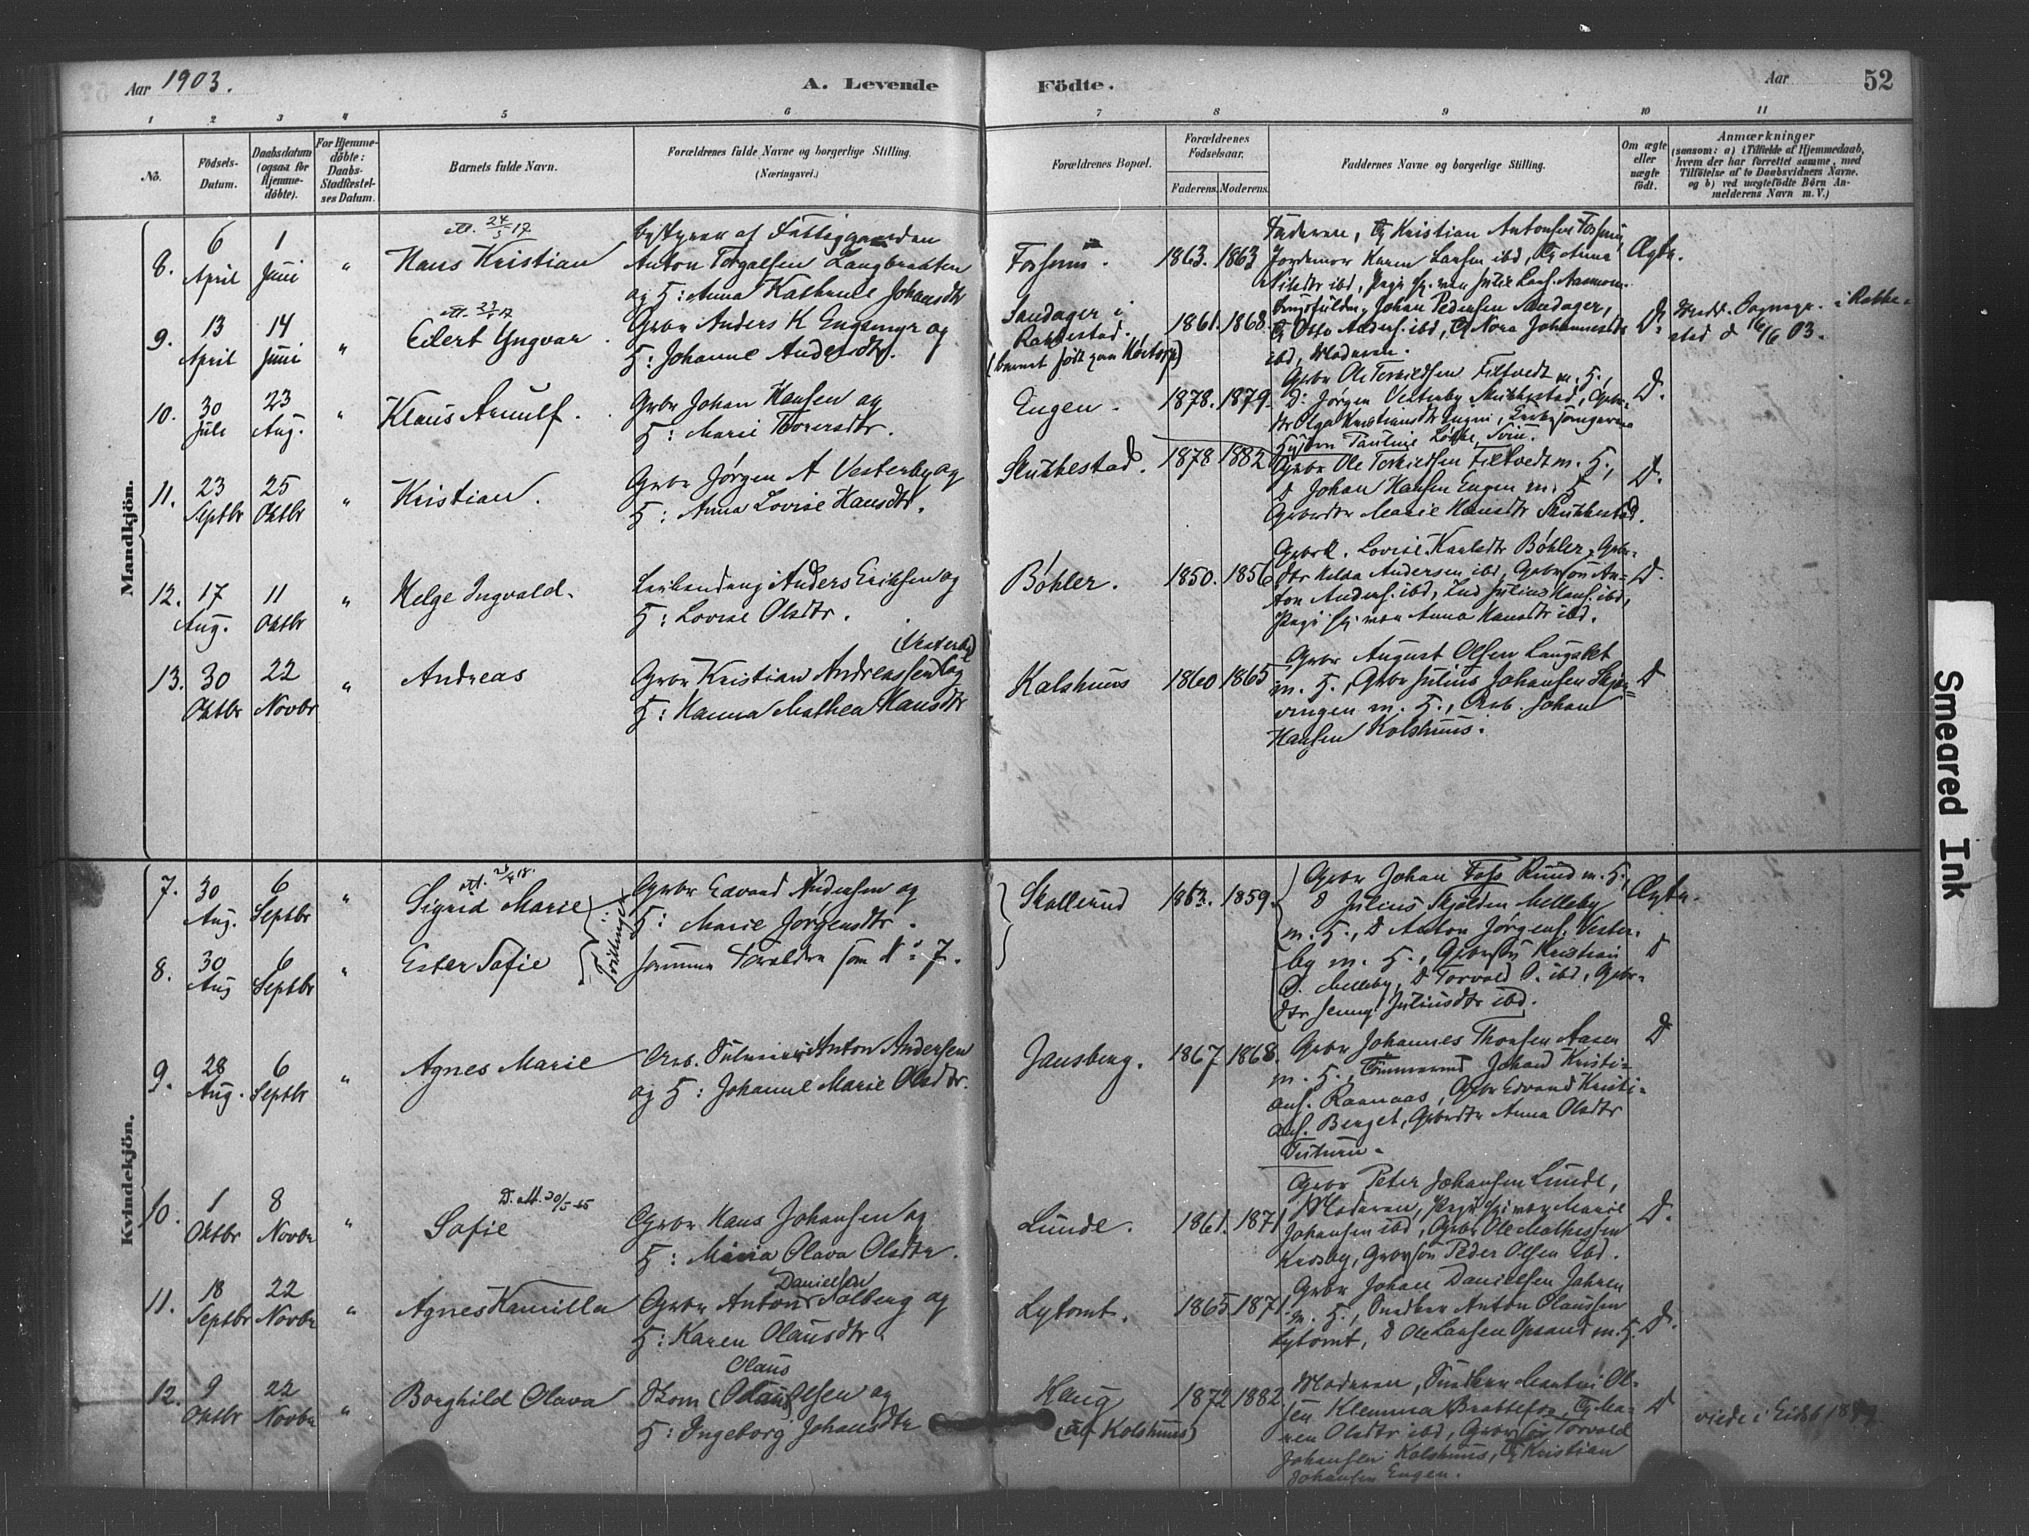 Aar 1903.
A. Levende
Födte.
Aar
52
1 2 3 4 5 6 7 8 9 10 11
No.
Födsels-
Datum.
Daabsdatum
(ogsaa for
Hjemme-
döbte).
For Hjemme-
döbte:
Daabs-
Stadfæstel-
ses Datum.
Barnets fulde Navn.
Forældrenes fulde Navne og borgerlige Stilling.
(Næringsvei.)
Forældrenes Bopæl.
Forældrenes
Födselsaar.
Faderens. Moderens.
Faddernes Navne og borgerlige Stilling.
Om ægte
eller
uægte
födt.
Anmærkninger
(saasom: a) i Tilfælde af Hjemmedaab,
hvem der har forrettet samme, med
Tilföielse af to Daabsvidners Navne.
og b) ved uægtefödte Börn An-
melderens Navn m. V.)
Mandkjön.
8. 6 April 1 Juni "
Hans Kristian
Bestyrer af Fattiggaarden
Anton Torgalsen Langbraaten
og H: Anna Kathrine Johansdtr
Fosheim. 1863. 1863
Faderen, Kristian Antonsen
Jordemor Karen Larsen ibd, Anna
Ægte.
9. 13 April 14 Juni "
Edert Yngvar
Gbr Anders K Engsmyr og
H: Johanne Andersdtr.
Sandager i
Rakkestad.
1861. 1868.
Johan Pedersen Sandager,
Otto Anders. ibd, Nora Johannesdtr
ibd, Moderen.
D.
i Rakke-
stad d 16/6 03.
10. 30 Juli 23 Aug. "
Klaus Arnulf.
Gbr Johan Hansen og
H: Marie Torersdtr.
Engen. 1878. 1879.
Gbr Ole Terkildsen Filtvedt m. H.,
D: Jørgen Vesterby Skukkestad,
D.
11. 23 Septbr 25 Oktbr "
Kristian.
Gbr Jørgen A Vesterby og
H: Anna Lovise Hansdtr.
Skukkestad. 1878 1882
Gbr Ole Terkildsen Filtvedt m. H.,
D Johan Hansen Engen m. H
Marie Hansdtr Skukkestad.
D.
12. 17 Aug. 11 Oktbr "
Helge Ingvald.
Anders Eriksen og
H: Lovise Olsdtr.
Bøhler. 1850. 1856
Lovise Karlsdtr Bøhler, Gbr-
dtr Hilda Andersen ibd, Gbrsøn An-
ton Anders. ibd, Julius Hans. ibd,
Pige Anna Hansdtr ibd.
D.
13. 30 Oktbr 22 Novbr "
Andreas
(Vesterby)
Gbr Kristian Andreassen og
H: Hanna Mathea Hansdtr
Kolshuus 1860 1865
Gbr August Olsen Langsæt
m. H., Gbr Julius Johansen Skjer-
vingen m. H., Arb. Johan
Hansen Kolshuus.
D
Kvindekjön.
7. 30 Aug. 6 Septbr "
Sigrid Marie
Gbr Edvard Andersen og
H: Marie Jørgensdtr.
Skallerud 1863. 1859.
Gbr Johan Foss Rund m. H.,
D Julius Skjolden Melleby
m. H., D Anton Jørgens. Vester-
by m. H., Gbrsøn Kristian
J. Melleby, D Torvald J. ibd, Gbr-
dtr Jenny Juliusdtr ibd.
Ægte.
8. 30 Aug 6 Septbr "
Ester Sofie
Tvillinger
samme Forældre som No 7.
D
9. 28 Aug. 6 Septbr "
Agnes Marie
Arb. Anton Andersen
og H: Johanne Marie Olsdtr.
Jansberg. 1867 1868.
Gbr Johannes Thorsen Aasen
m. H., Tømmermd Johan Kristi-
ans. Raanaas, Gbr Edvard Kristi-
ans. Berget, Gbrdtr Anna Olsdtr
D
10. 1 Oktbr 8 Novbr "
D. att. 30/5-55
Sofie
Gbr Hans Johansen og
H: Maria Olava Olsdtr.
Lunde. 1861. 1871
Gbr Peter Johansen Lunde,
Moderen, Pige Marie
Johansen ibd, Gbr Ole Mathissen
Krosby, Gbrsøn Peder Olsen ibd.
D.
11. 18 Septbr 22 Novbr "
Agnes Kamilla
Danielsen
Gbr Anton Solberg og
H: Karen Olausdtr
Lytomt. 1865 1871.
Gbr Johan Danielsen Jahren
m. H., Snedker Anton Olaussen
Lytomt, D Ole Larsen Opsand m. H.
D.
12. 9 Oktbr 22 Novbr "
Borghild Olava
Olaus
Skom Olsen og
H: Ingeborg Johansdtr
Haug
(af Kolshuus)
1872 1882
Moderen, Snedker Martin Ol-
sen Klemma Brattefos, Ma-
ren Olsdtr ibd, Gbrsøn Torvald
Johansen Kolshuus, Kristian
Johansen Engen.
D
viede i Eidsb 18
Smeared Ink